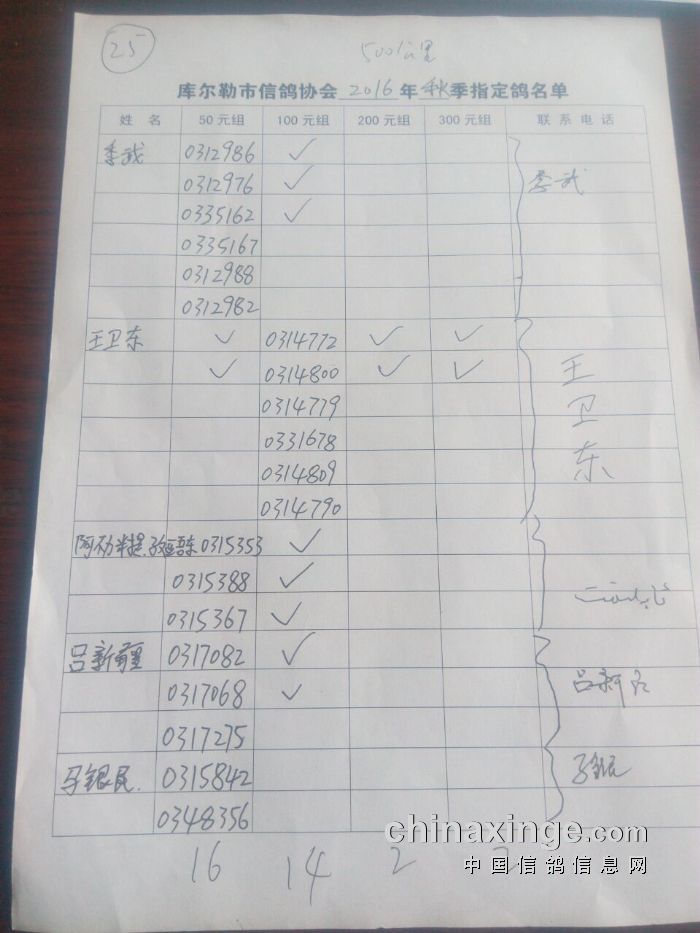 25
500公里
库尔勒市信鸽协会 2016 年 秋 季指定鸽名单
姓 名 50元组 100元组 200元组 300元组 联系电话
季武 0312986 ✓ 季武
0312976 ✓
0335162 ✓
0335167
0312988
0312982
王卫东 ✓ 0314772 ✓ ✓ 王卫东
✓ 0314800 ✓ ✓
0314779
0331678
0314809
0314790
0315353 ✓
0315388 ✓
0315367 ✓
吕新疆 0317082 ✓ 吕新疆
0317068 ✓
0317275
马银民 0315842
0348356
16 14 2 2
chinaxinge.com
中国信鸽信息网